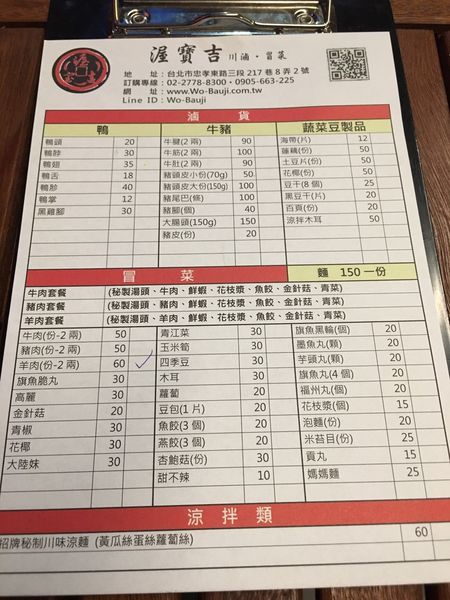 渥寶吉 川滷・冒菜
地 址：台北市忠孝東路三段 217 巷 8 弄 2 號
訂購專線：02-2778-8300・0905-663-225
網 址：www.Wo-Bauji.com.tw
Line ID：Wo-Bauji
滷 貨
鴨 牛豬 蔬菜豆製品
鴨頭 20 牛腱(2 兩) 90 海帶(片) 12
鴨脖 30 牛筋(2 兩) 100 蓮藕(份) 50
鴨翅 35 牛肚(2 兩) 90 土豆片(份) 50
鴨舌 18 豬頭皮小份(70g) 50 花椰(份) 50
鴨胗 40 豬頭皮大份(150g) 100 豆干(8 個) 25
鴨掌 12 豬尾巴(條) 100 黑豆干(片) 20
黑雞腳 30 豬腳(個) 40 百頁(份) 20
大腸頭(150g) 150 涼拌木耳 50
豬皮(份) 20
冒 菜 麵 150 一份
牛肉套餐 (秘製湯頭、牛肉、鮮蝦、花枝漿、魚餃、金針菇、青菜)
豬肉套餐 (秘製湯頭、豬肉、鮮蝦、花枝漿、魚餃、金針菇、青菜)
羊肉套餐 (秘製湯頭、羊肉、鮮蝦、花枝漿、魚餃、金針菇、青菜)
牛肉(份-2 兩) 50 青江菜 30 旗魚黑輪(個) 20
豬肉(份-2 兩) 50 玉米筍 30 墨魚丸(顆) 20
羊肉(份-2 兩) 60 四季豆 30 芋頭丸(顆) 20
旗魚脆丸 30 木耳 30 旗魚丸(4 個) 20
高麗 30 蘿蔔 30 福州丸(個) 20
金針菇 20 豆包(1 片) 20 花枝漿(個) 15
青椒 30 魚餃(3 個) 20 泡麵(份) 20
花椰 30 燕餃(3 個) 20 米苔目(份) 25
大陸妹 30 杏鮑菇(份) 30 貢丸 15
甜不辣 10 媽媽麵 25
涼拌類
招牌秘制川味涼麵 (黃瓜絲蛋絲蘿蔔絲) 60